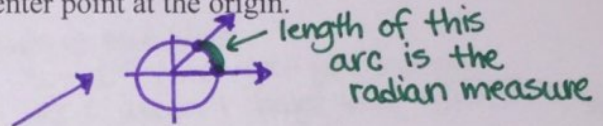 enter point at the origin.
length of this
arc is the
radian measure